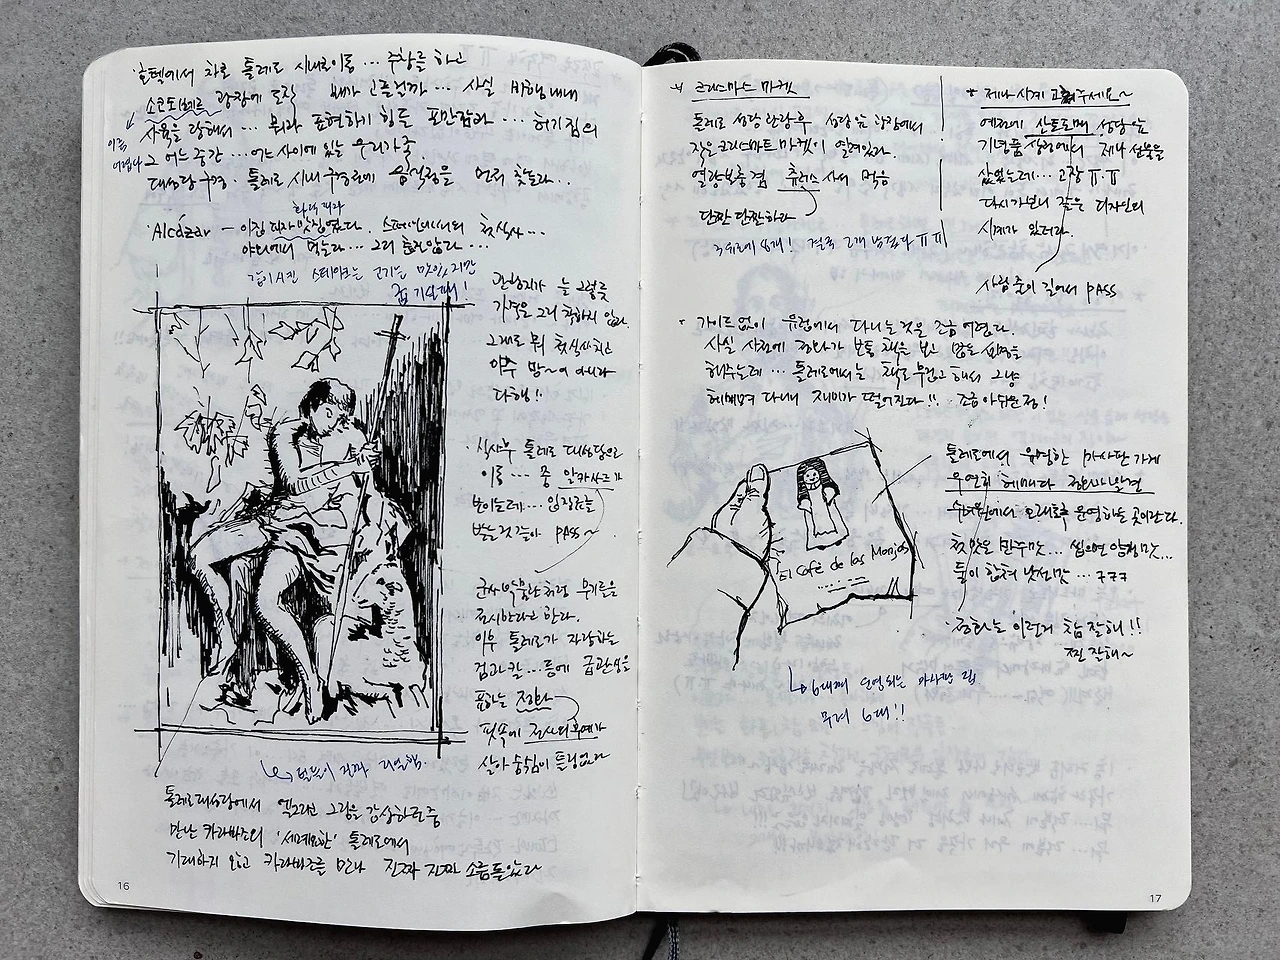 호텔에서 차로 톨레도 시내로 이동 … 주차를 하고
소코도베르 광장에 도착 배가 고플릴까 … 사실 비행내내
사육을 당해서 … 뭐라 표현하기 힘든 포만감과 … 허기짐의
이름 어렵다
그 어느 중간 … 어느 사이에 있는 우리가족.
대성당 구경. 톨레도 시내 구경전에 음식점을 먼저 찾는다…
Alcázar – 이집 피자 맛집였다. 스페인에서의 첫식사 …
야외에서 먹는다 … 그리 춥지않다 …
같이 시킨 스테이크는 고기는 맛있지만
관광지가 늘 그렇듯
가격은 그리 착하지 않다.
그래도 뭐 첫식사치고
아주 망~이 아니라
다행!!
식사후 톨레도 대성당으로
이동 … 중 알카사르가
보이는데 … 입장료를
받는것 같아 PASS~
군사박물관처럼 무기들을
전시한다고 한다.
이후 톨레도가 자랑하는
검과 칼 … 등에 급관심을
표하는 진화
핏속에 전사의 후예가
살아 숨쉼이 틀림없다
톨레도 대성당에서 엘그레코 그림을 감상하던 중
만난 카라바조의 '세례요한' 톨레도에서
기대하지 않고 카라바조를 만나 진짜 진짜 소름돋았다
16
크리스마스 마켓
톨레도 성당 관람후 성당앞 광장에서
작은 크리스마트 마켓이 열려있다.
열량보충 겸 츄러스 사서 먹음
단짠 단짠하다
3유로에 6개! 결국 2개 남겼다 ㅠㅠ
* 제나 시계 고쳐주세요~
예전에 산토토메 성당앞
기념품 상점에서 제나 선물을
샀었는데 … 고장 ㅠ.ㅠ
다시가보니 같은 디자인의
시계가 있더라.
사람 줄이 길어서 PASS
가이드없이 유럽에서 다니는것은 조금 어렵다.
사실 사전에 진화가 보통 책을 보고 많은 설명을
해주는데 … 톨레도에서는 책도 무겁고해서 그냥
헤매며 다니니 재미가 떨어진다!! 조금 아쉬운점!
El Café de las Monjas
톨레도에서 유명한 마사판 가게
우연히 헤매다 진화가 발견
수녀원에서 오래전부터 운영하는 곳이란다.
첫맛은 만주맛 … 씹으면 양갱맛…
둘이 합쳐 낯선맛 … ㅋㅋㅋ
진화는 이런거 참 잘해!!
찐 잘해~
6대째 운영되는 마사판 집
무려 6대!!
17